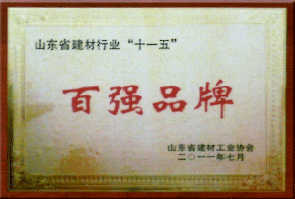 山东省建材行业“十一五”
百强品牌
山东省建材工业协会
二〇一一年七月